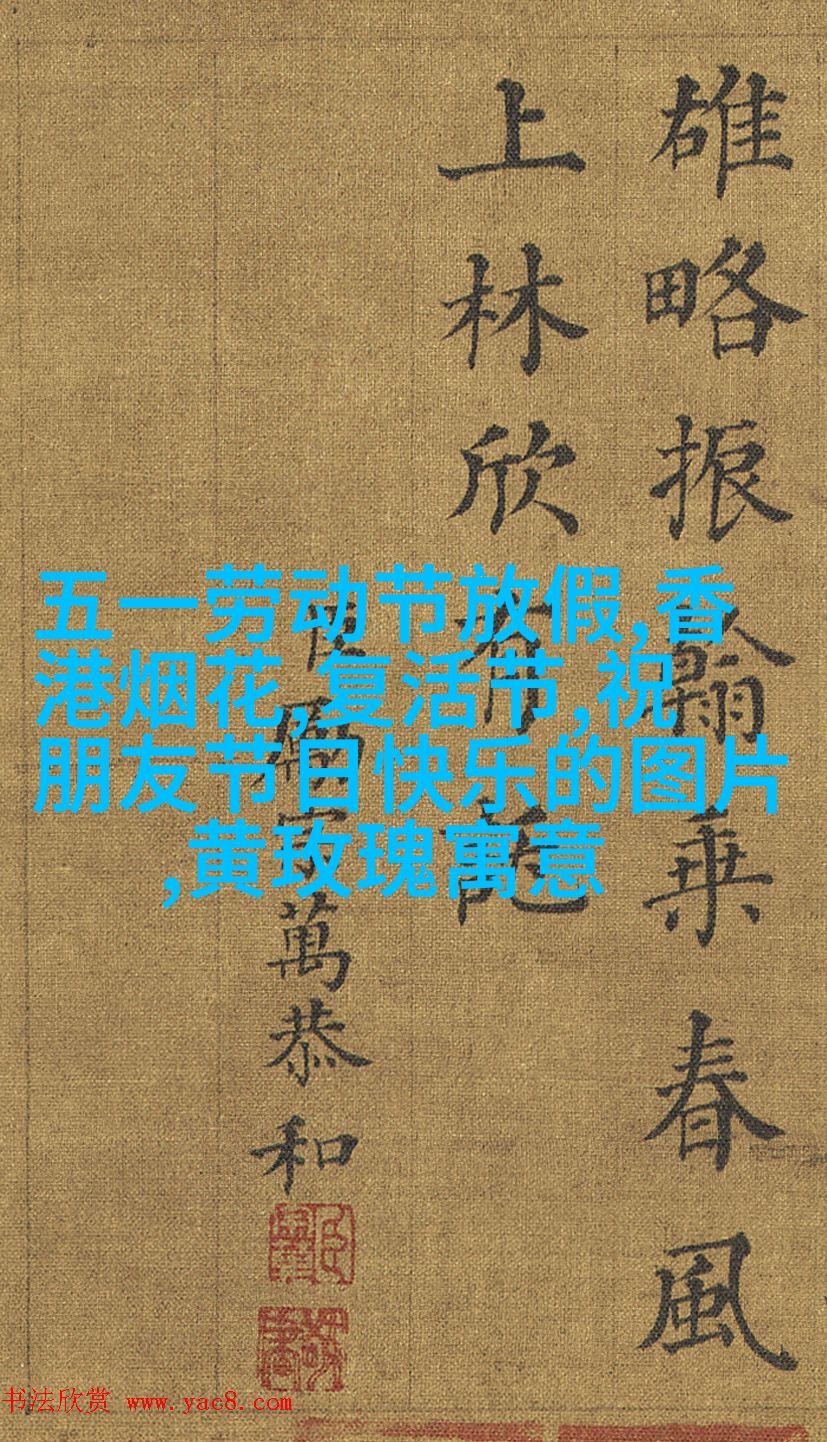 雄略振翰乘春風
上林欣有託
臣勵宗萬恭和
五一劳动节放假,香
港烟花,复活节,祝
朋友节目快乐的图片
,黄玫瑰寓意
书法欣赏 www.yac8.com